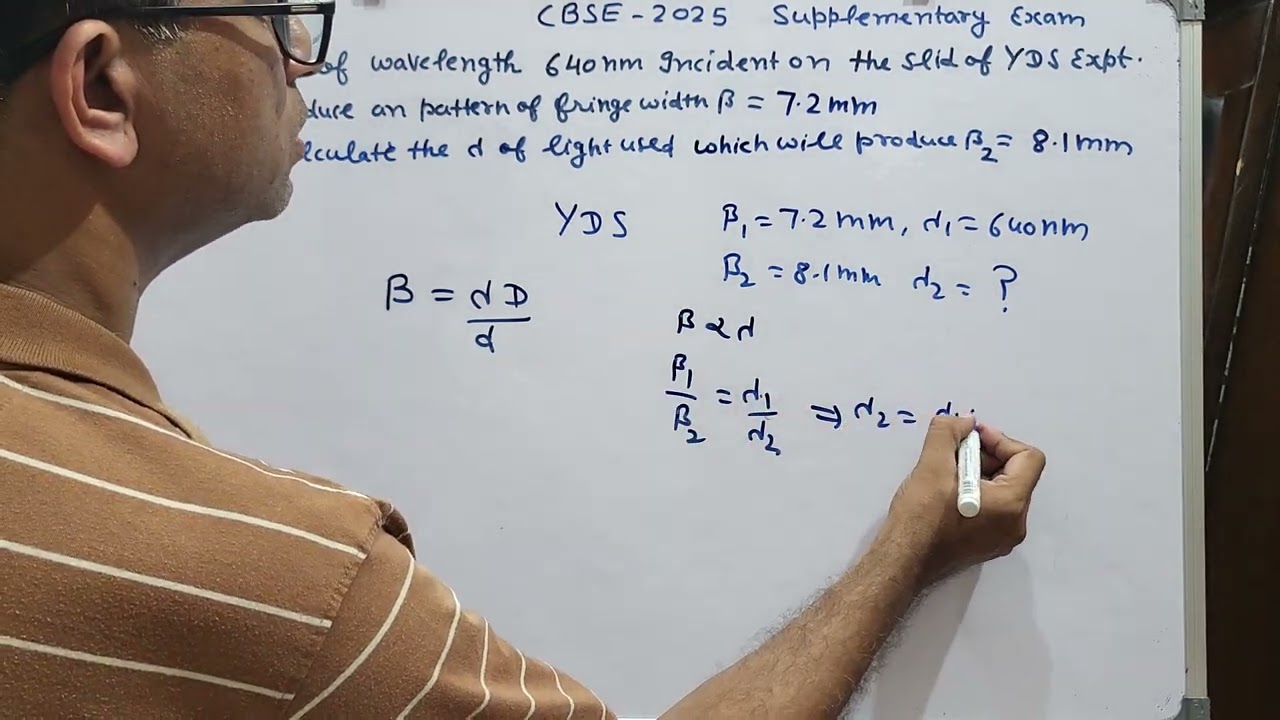 CBSE - 2025 Supplementary Exam
of wavelength 640nm Incident on the slid of YDS Expt.
duce an pattern of fringe width β = 7.2mm
lculate the λ of light used which will produce β₂ = 8.1mm
YDS
β₁ = 7.2mm, λ₁ = 640nm
β₂ = 8.1mm λ₂ = ?
β = λD/d
β ∝ λ
β₁/β₂ = λ₁/λ₂ ⇒ λ₂ =